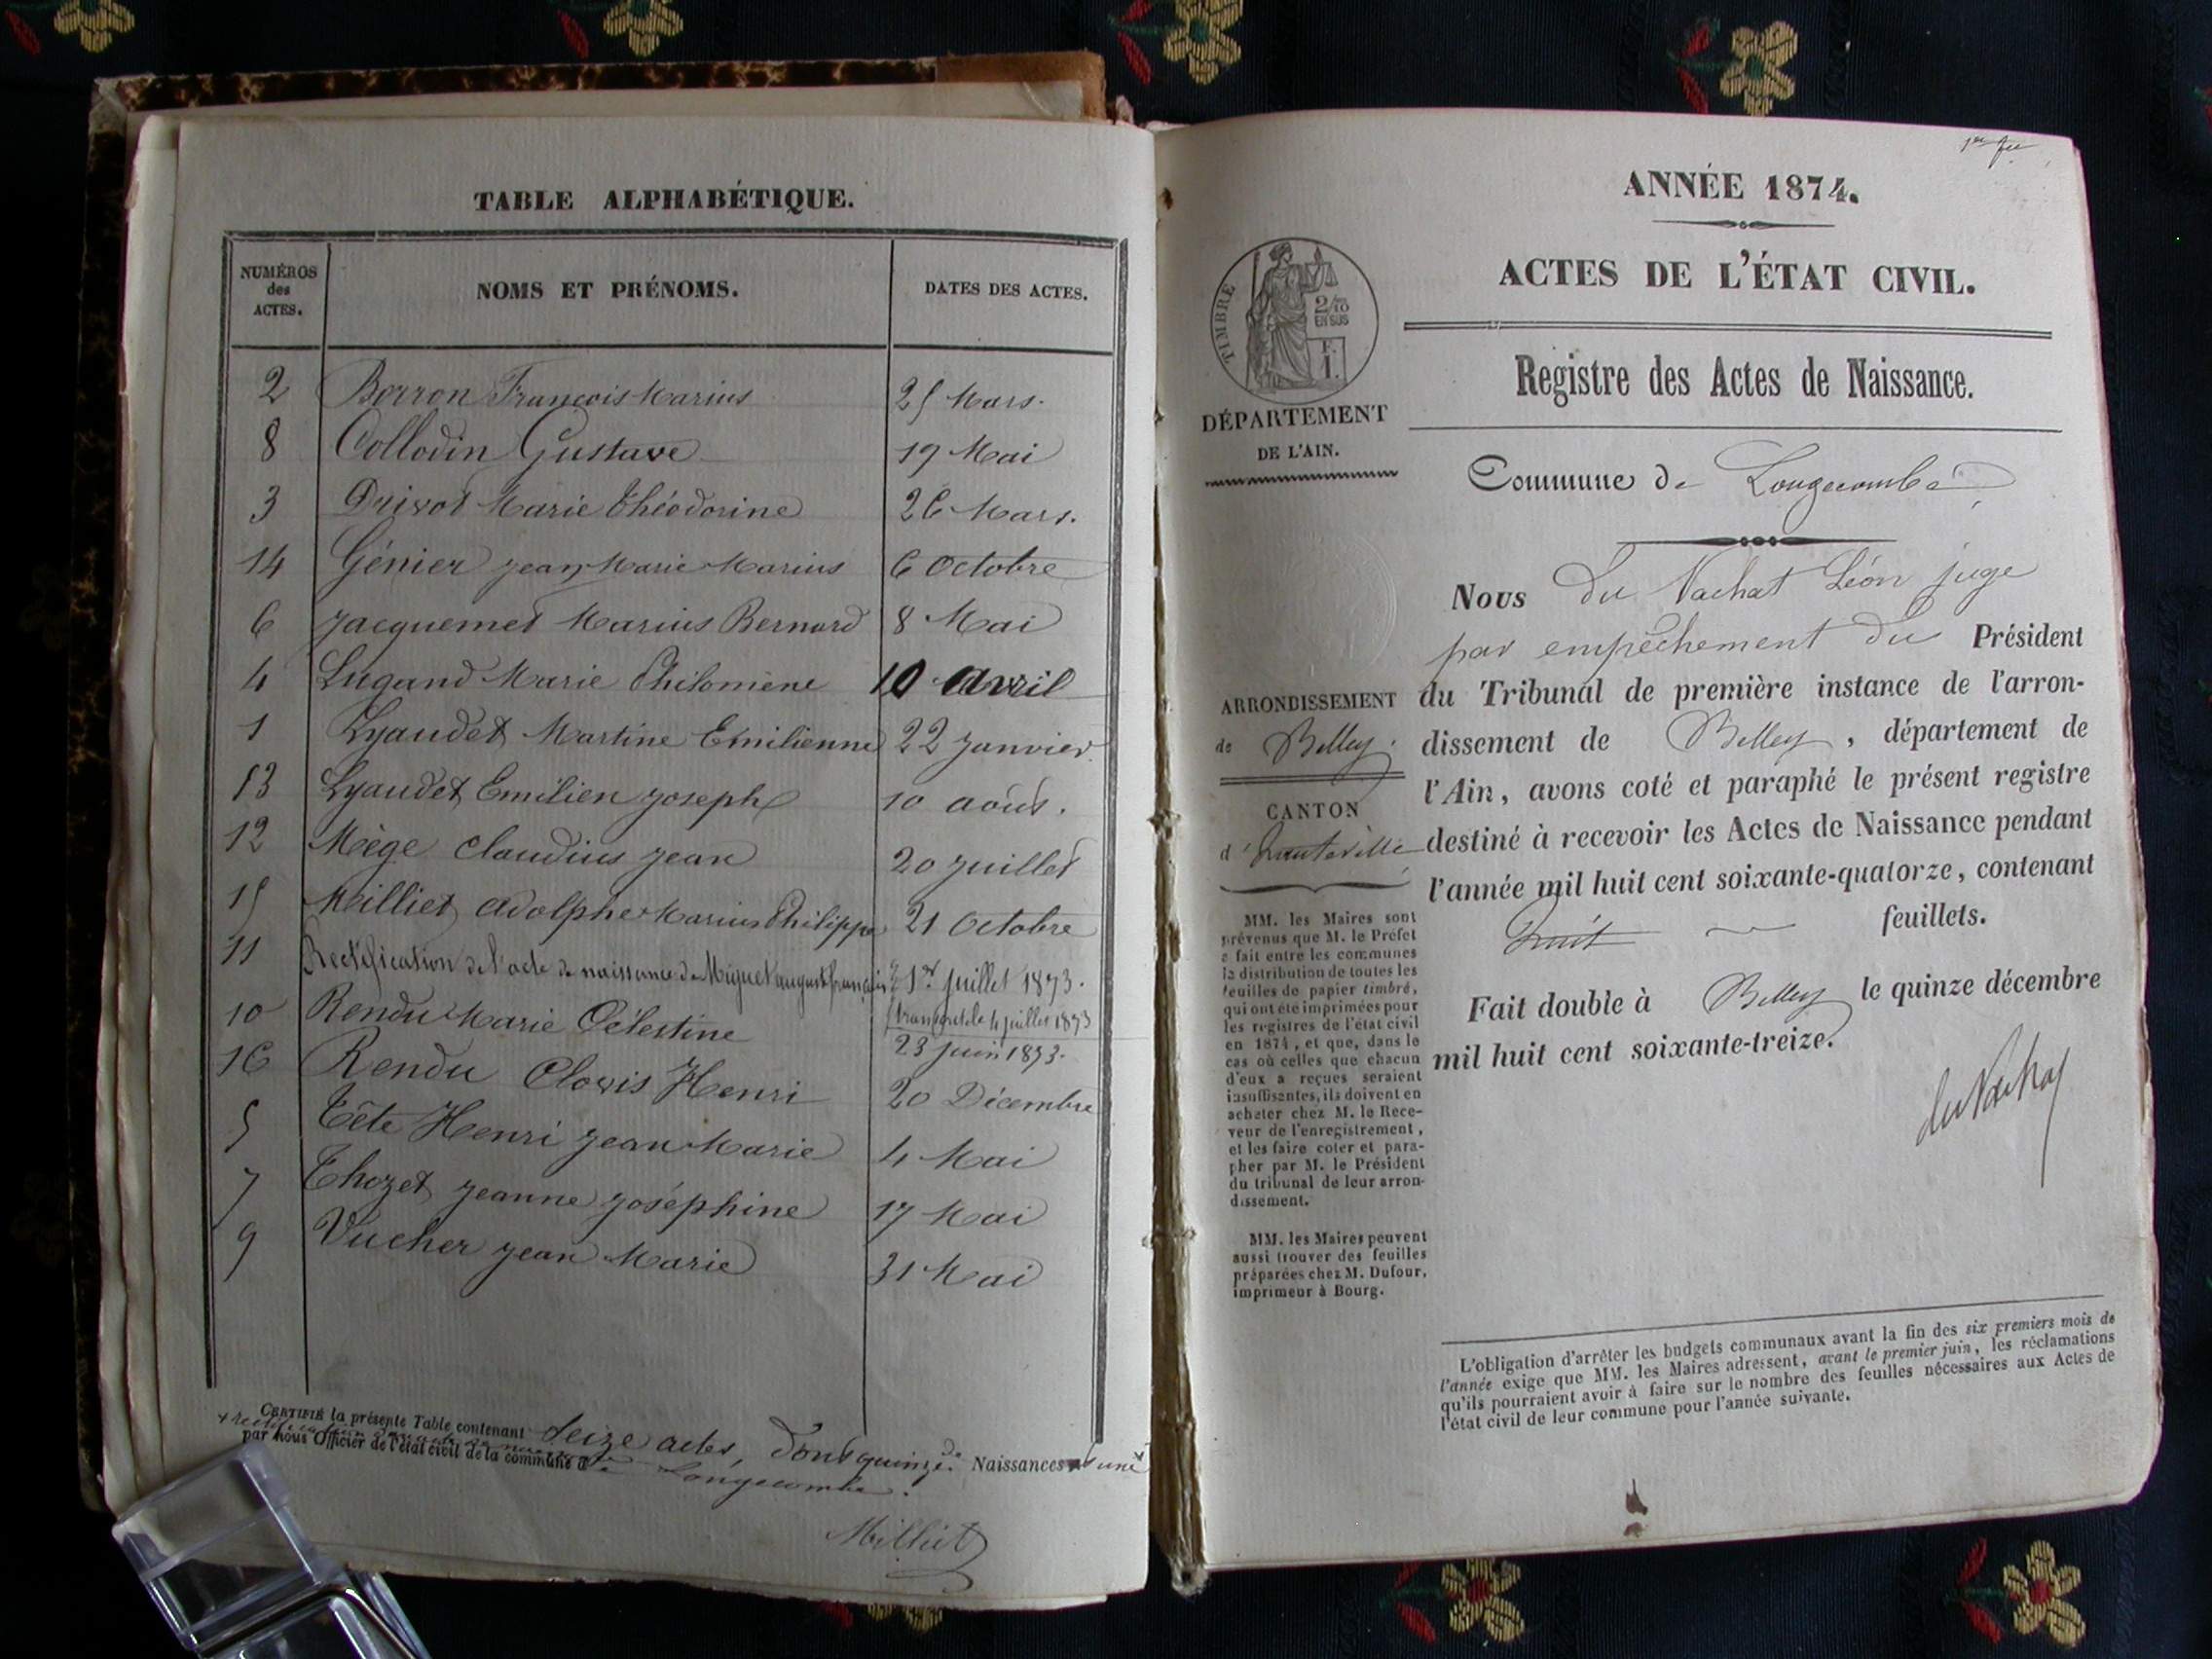 TABLE ALPHABÉTIQUE.
NUMÉROS des ACTES.
NOMS ET PRÉNOMS.
DATES DES ACTES.
2 Borron François Marius 25 Mars.
8 Collodin Gustave 19 Mai
3 Drivot Marie Théodorine 26 Mars.
14 Génier Jean Marie Marius 6 Octobre
6 Jacquemet Marius Bernard 8 Mai
4 Lugand Marie Philomène 10 avril
1 Lyaudet Martine Emilienne 22 Janvier.
13 Lyaudet Emilien Joseph 10 août.
12 Mège Claudius Jean 20 Juillet
15 Milliet Adolphe Marius Philippe 21 Octobre
11 Rectification de l'acte de naissance de Miguet august françois 1er juillet 1873.
transcrit le 4 juillet 1873
10 Rendu Marie Célestine 23 juin 1873.
16 Rendu Clovis Henri 20 Décembre
5 Tête Henri Jean Marie 4 Mai
7 Thozet Jeanne Joséphine 17 Mai
9 Vucher Jean Marie 31 Mai
CERTIFIÉ la présente Table contenant Seize actes, dont quinze de Naissances et une
par nous Officier de l'état civil de la commune de Longecombe.
Milliet
1er fet
ANNÉE 1874.
ACTES DE L'ÉTAT CIVIL.
TIMBRE
2/10
EN SUS
F.
1.
Registre des Actes de Naissance.
DÉPARTEMENT
DE L'AIN.
Commune de Longecombe
Nous du Vachat Léon juge
par empêchement du Président
du Tribunal de première instance de l'arron-
dissement de Belley, département de
l'Ain, avons coté et paraphé le présent registre
destiné à recevoir les Actes de Naissance pendant
l'année mil huit cent soixante-quatorze, contenant
huit feuillets.
Fait double à Belley le quinze décembre
mil huit cent soixante-treize.
du Vachat
ARRONDISSEMENT
de Belley.
CANTON
d'hauteville
MM. les Maires sont
prévenus que M. le Préfet
a fait entre les communes
la distribution de toutes les
feuilles de papier timbré,
qui ont été imprimées pour
les registres de l'état civil
en 1874, et que, dans le
cas où celles que chacun
d'eux a reçues seraient
insuffisantes, ils doivent en
acheter chez M. le Rece-
veur de l'enregistrement,
et les faire coter et para-
pher par M. le Président
du tribunal de leur arron-
dissement.
MM. les Maires peuvent
aussi trouver des feuilles
préparées chez M. Dufour,
imprimeur à Bourg.
L'obligation d'arrêter les budgets communaux avant la fin des six premiers mois de
l'année exige que MM. les Maires adressent, avant le premier juin, les réclamations
qu'ils pourraient avoir à faire sur le nombre des feuilles nécessaires aux Actes de
l'état civil de leur commune pour l'année suivante.